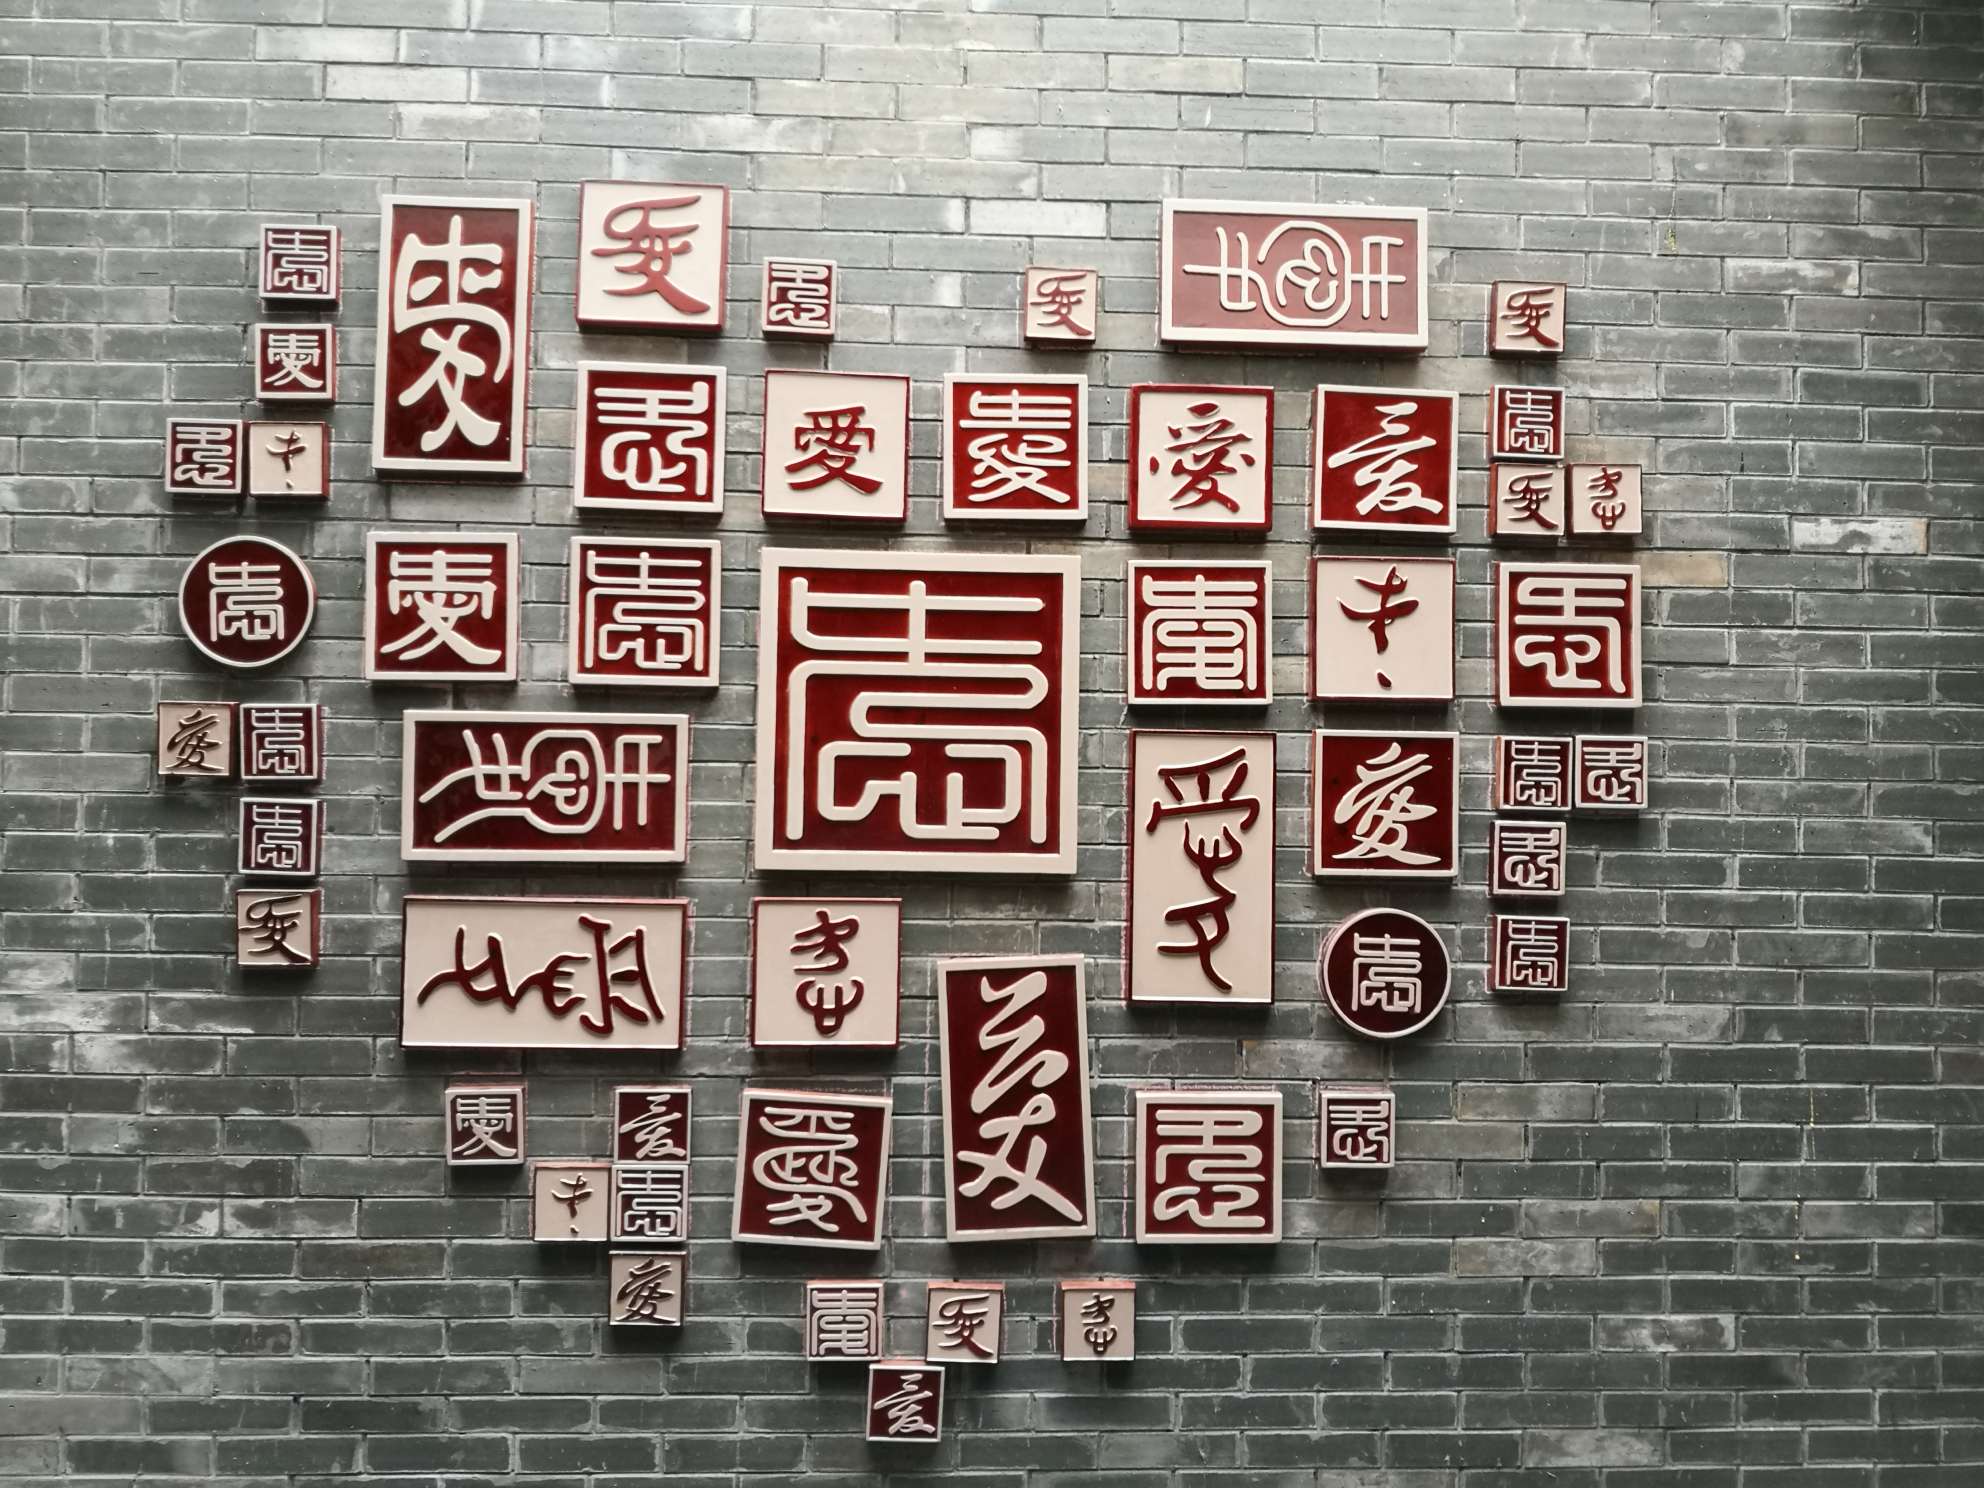 愛
愛
愛
愛
愛
愛
愛
愛
愛
愛
愛
愛
愛
愛
愛
愛
愛
愛
愛
愛
愛
愛
愛
愛
愛
愛
愛
愛
愛
愛
愛
愛
愛
愛
愛
愛
愛
愛
愛
愛
愛
愛
愛
愛
愛
愛
愛
愛
愛
愛
愛
愛